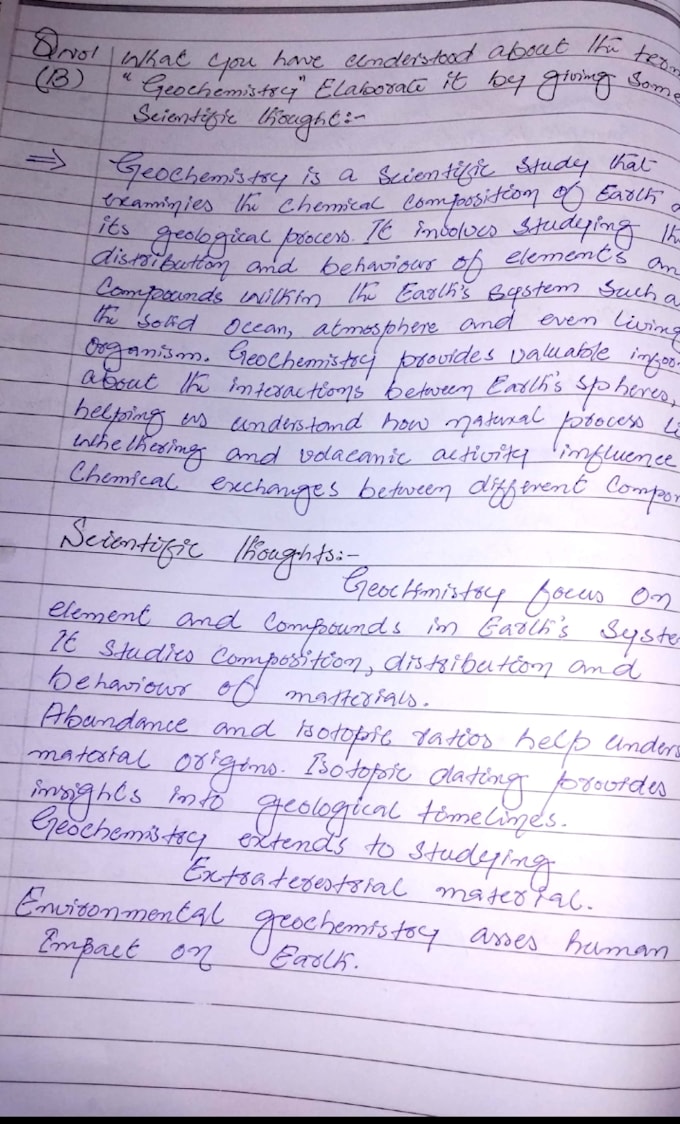 Qno1 What you have understood about the term
(B) "Geochemistry" Elaborate it by giving Some
Scientific thought:-
⇒ Geochemistry is a Scientific Study that
examinies the chemical composition of Earth
its geological process. It involves Studying th
distribution and behaviour of elements an
Compounds within the Earth's System Such a
the Solid Ocean, atmosphere and even living
Organism. Geochemistry provides valuable infor
about the interactions between Earth's Spheres,
helping us understand how natural process li
whethering and volacanic activity influence
Chemical exchanges between different Compon
Scientific thoughts:-
Geochmistry focus on
element and Compounds in Earth's Syste
It Studies Composition, distribution and
behaviour of matterials.
Abundance and isotopic ratios help unders
material origins. Isotopic dating provides
insights into geological timelines.
Geochemistry extends to Studying
Extraterestrial material.
Environmental geochemistry asses human
Impact on Earth.